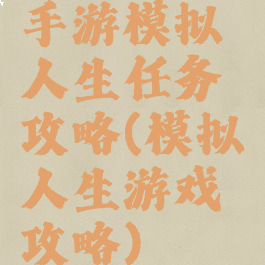 手游模拟
人生任务
攻略(模拟
人生游戏
攻略)